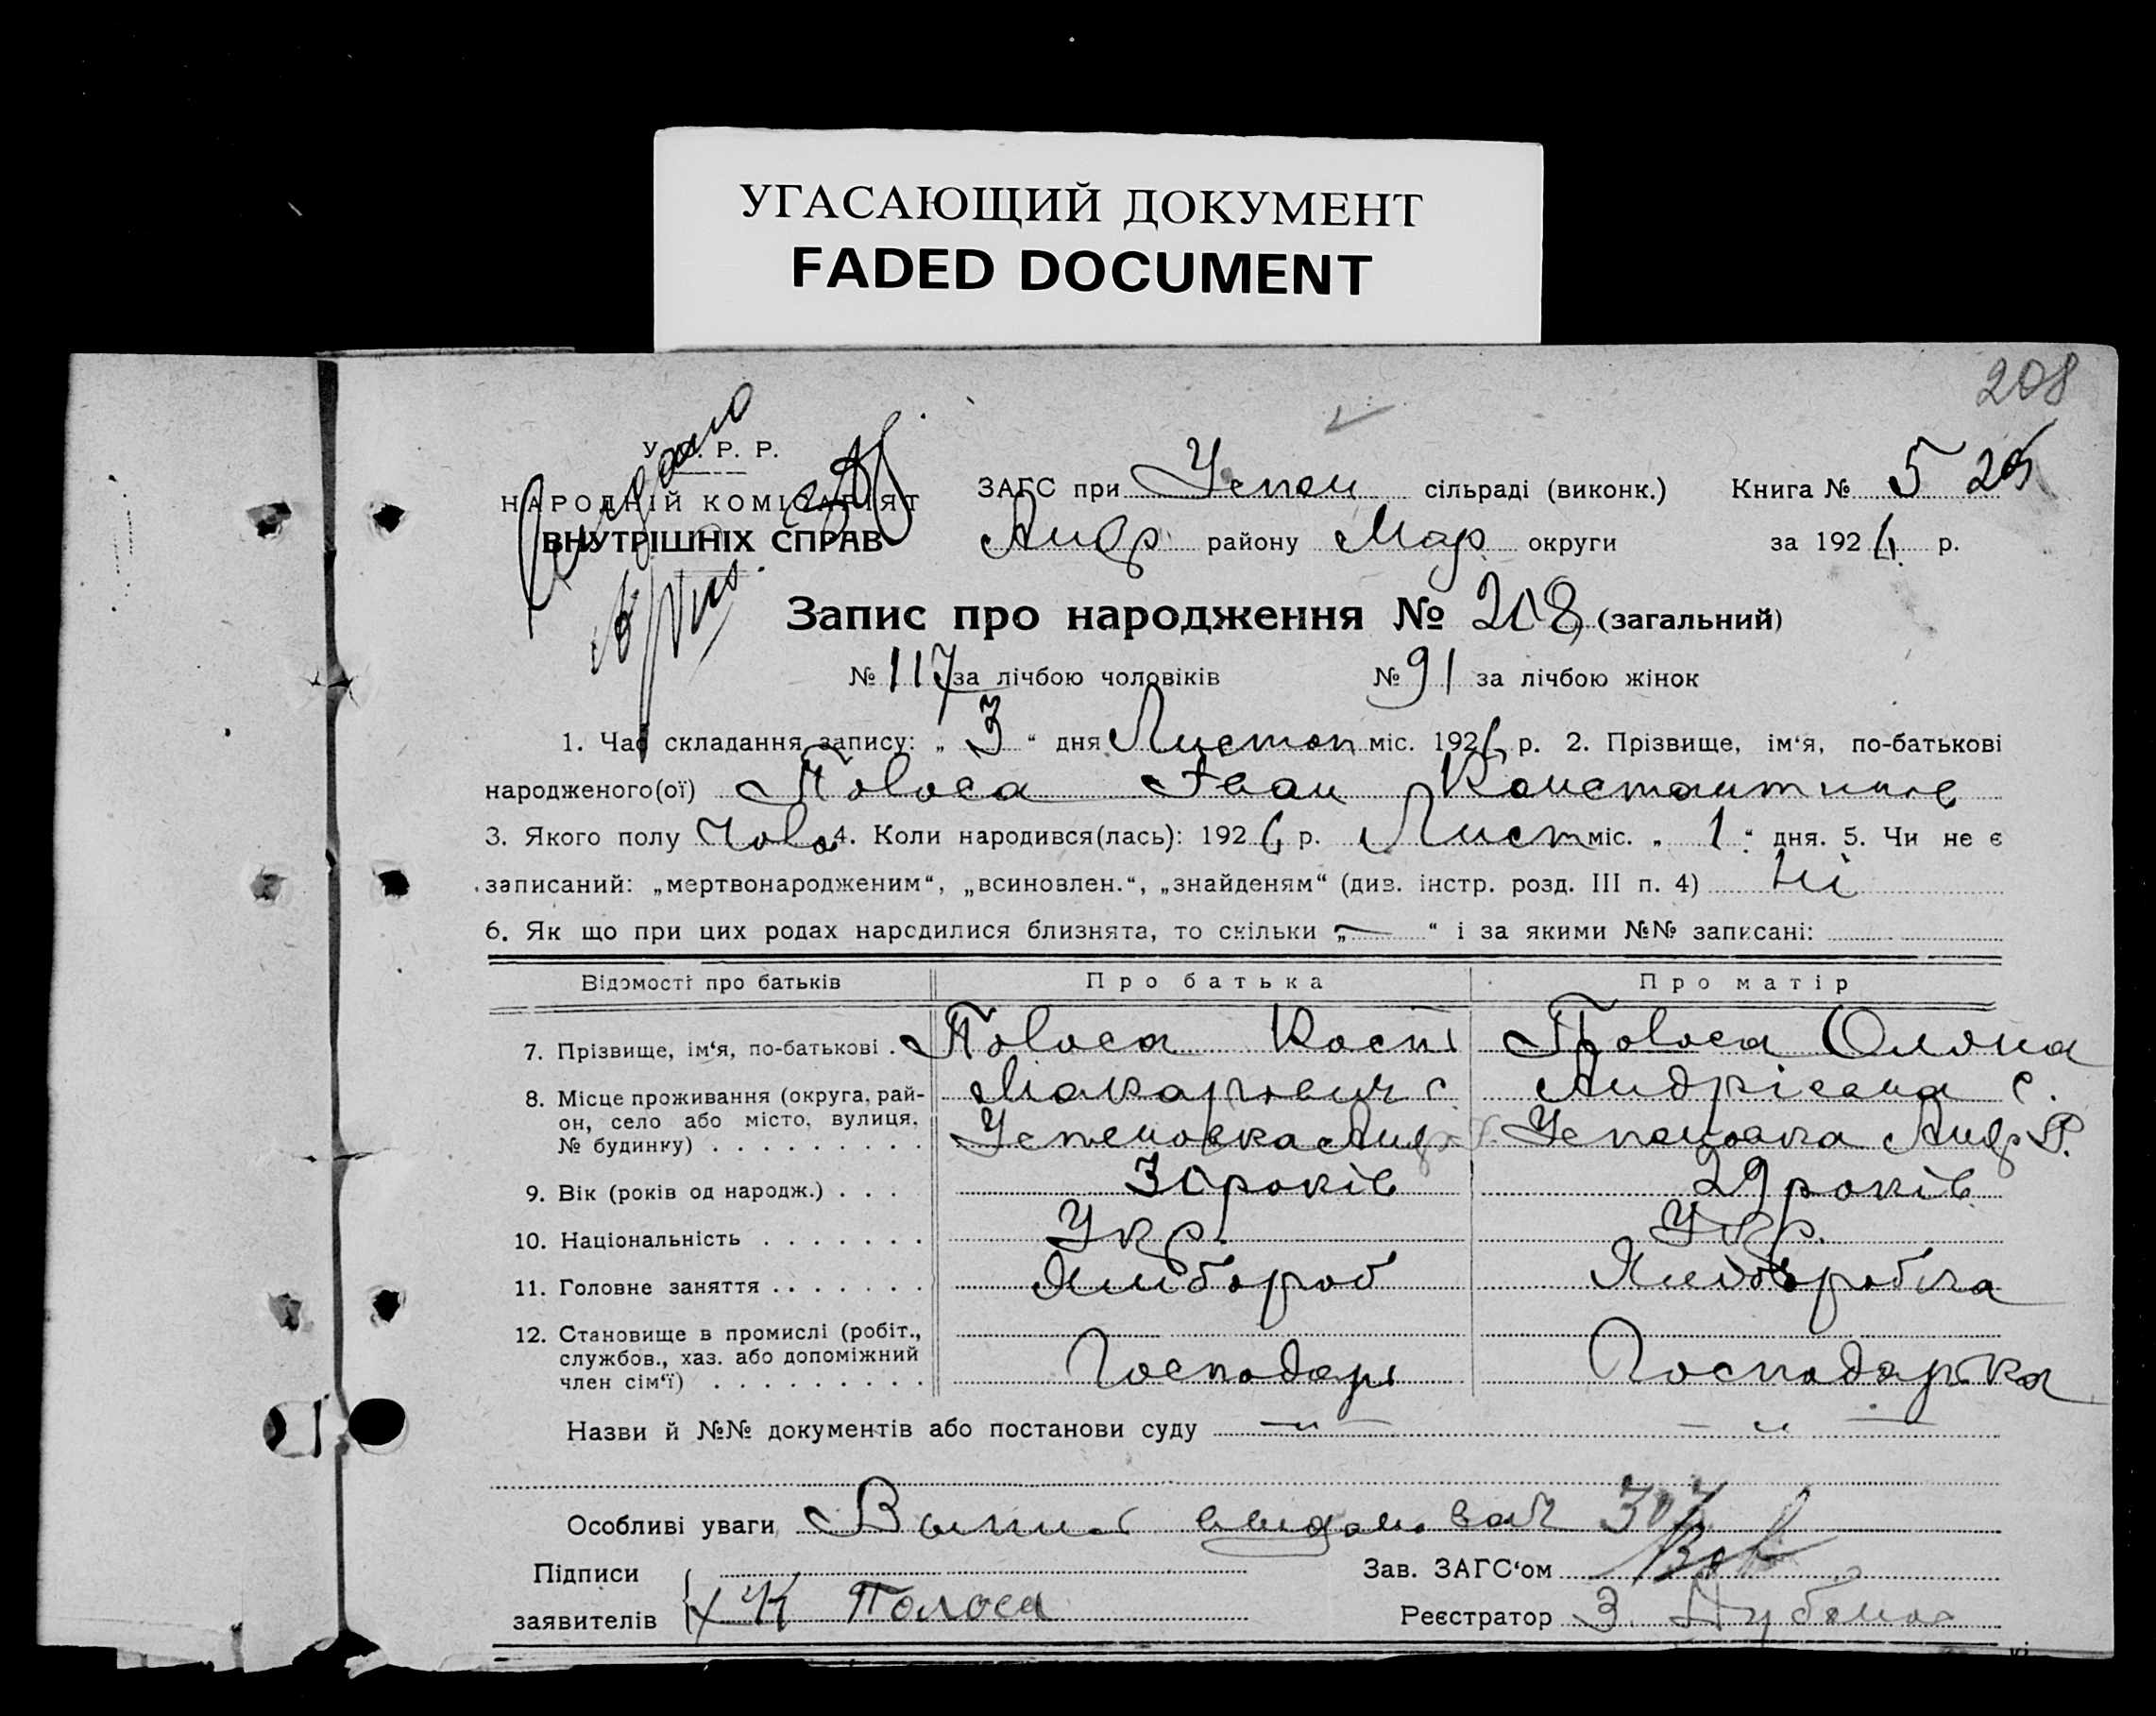 УГАСАЮЩИЙ ДОКУМЕНТ
FADED DOCUMENT
208
У. Р. Р.
НАРОДНІЙ КОМІСАРІЯТ
ВНУТРІШНІХ СПРАВ
ЗАГС при Успен сільраді (виконк.) Книга № 5 205
Андр району Мар округи за 1926 р.
Запис про народження № 208 (загальний)
№ 117 за лічбою чоловіків № 91 за лічбою жінок
1. Час складання запису: „ 3 “ дня Листоп міс. 1926 р. 2. Прізвище, ім‘я, по-батькові
народженого(ої) Полоса Іван Константинов
3. Якого полу Чоло 4. Коли народився(лась): 1926 р. Лист міс. „ 1 “ дня. 5. Чи не є
записаний: „мертвонародженим“, „всиновлен.“, „знайденям“ (див. інстр. розд. III п. 4) Ні
6. Як що при цих родах народилися близнята, то скільки „ — “ і за якими №№ записані:
Відомості про батьків Про батька Про матір
7. Прізвище, ім‘я, по-батькові . Полоса Кость Полоса Оляна
8. Місце проживання (округа, рай- Макарович с. Андріевна с.
он, село або місто, вулиця, Успеновка Андр Успеновка Андр Р.
№ будинку)
9. Вік (років од народж.) . . . 30 років 29 років
10. Національність Укр. Укр.
11. Головне заняття Хлібороб Хлеборобка
12. Становище в промислі (робіт.,
службов., хаз. або допоміжний Господарь Господарька
член сім‘ї)
Назви й №№ документів або постанови суду — „ — — „ —
Особливі уваги 307
Підписи Зав. ЗАГС‘ом
заявителів К Полоса Реєстратор З.